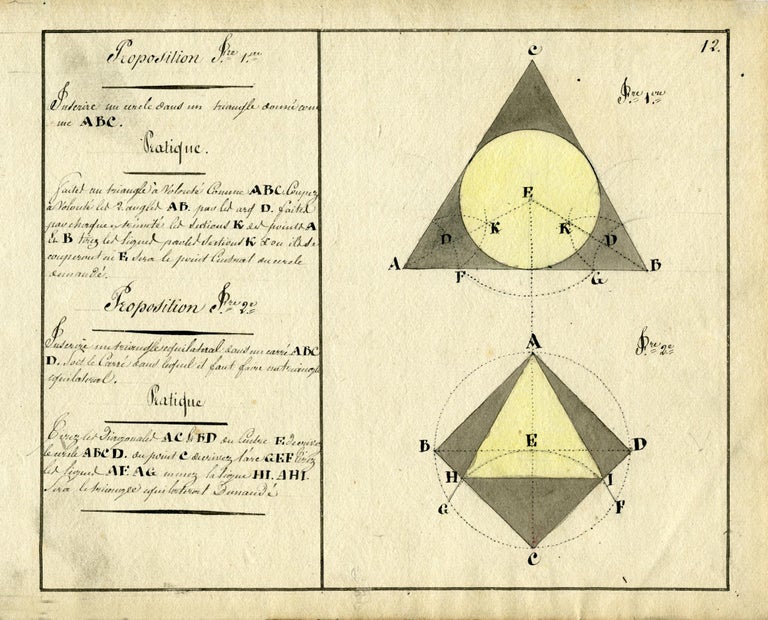 12.
Proposition P.re 1.ere
Inscrire un cercle dans un triangle donné com
me ABC.
Pratique.
Faites un triangle à Volonté Comme ABC Coupez
à Volonté les 2. angles AB. par les arcs D. faites
par chaque les sections K des points A
B tirez les lignes par les sections K où ils se
couperont E Sera le point Central du cercle
demandé.
Proposition P.re 2.e
Inscrire un triangle equilateral dans un carré ABC
D. Soit le Carré dans lequel il faut faire un triangle
equilateral.
Pratique
Tirez les Diagonales AC & BD du Centre E decrivez
le cercle ABCD. du point C decrivez l'arc GEF tirez
les lignes AF. AG menez la ligne HI. AHI.
Sera le triangle equilateral Demandé
P.re 1.ere
C
E
K K
D D
A F G B
P.re 2.e
A
B E D
H I
G F
C